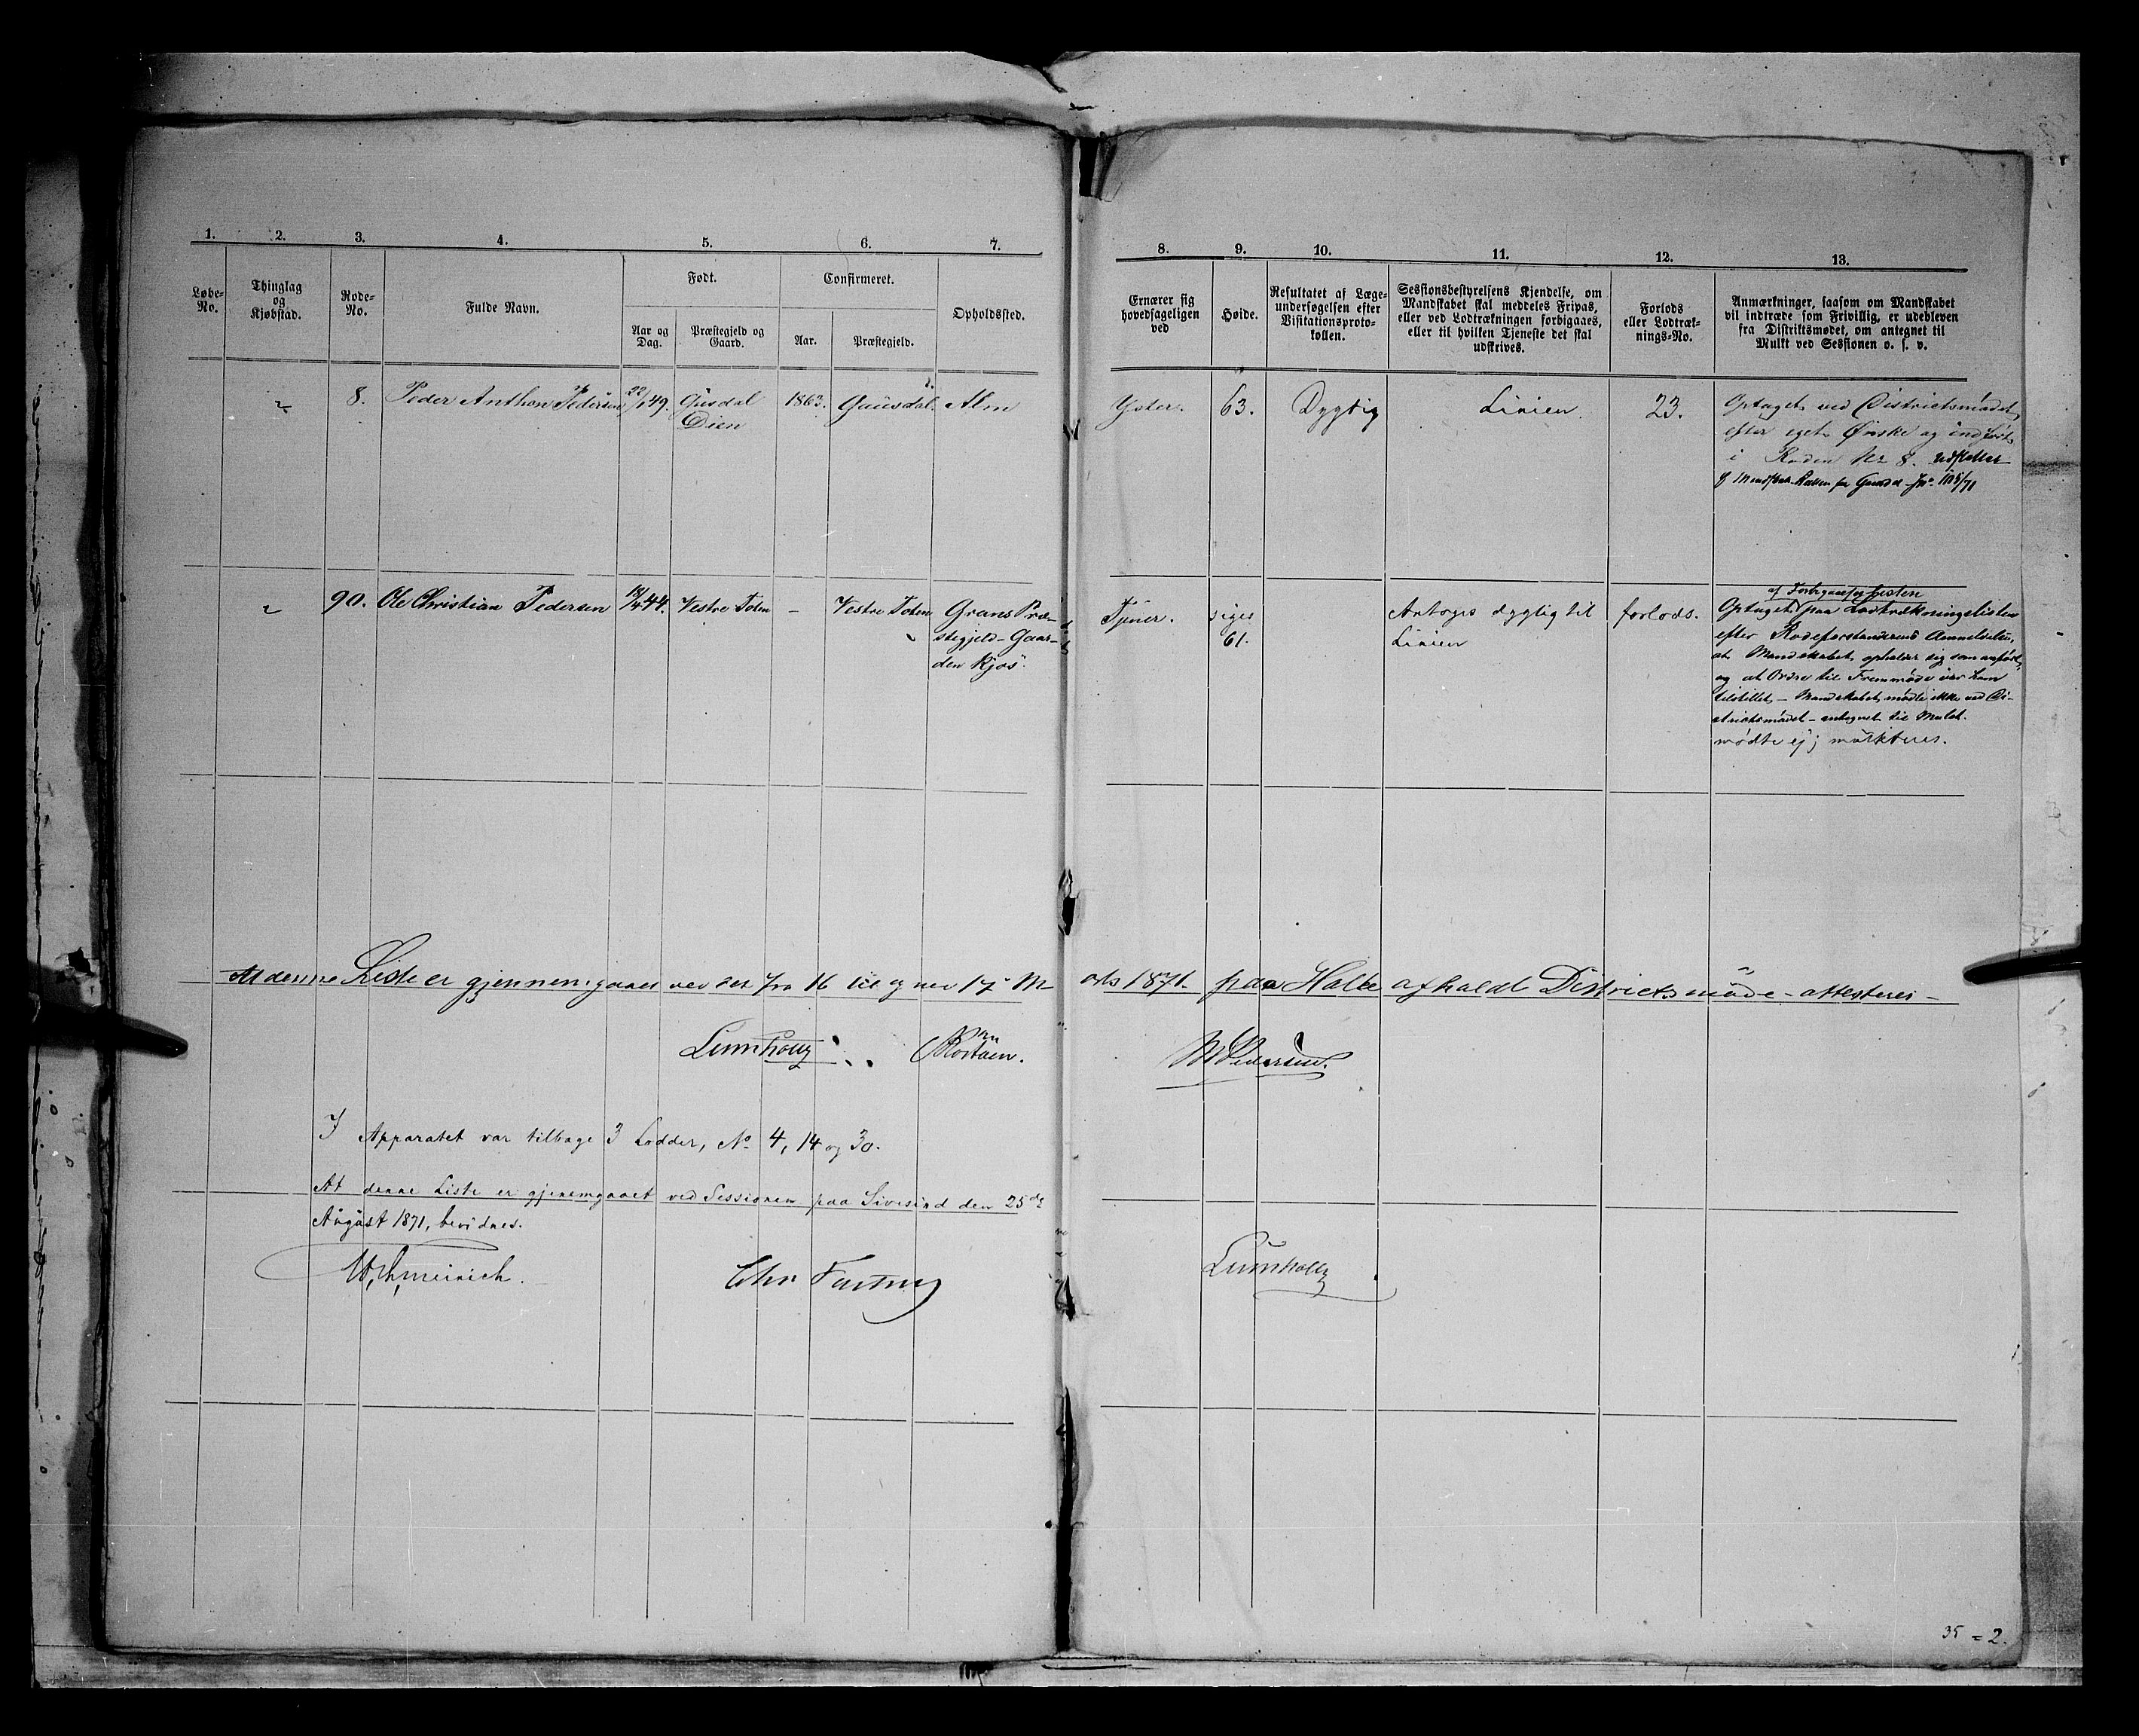 1. 2. 3. 4. 5. 6. 7.
Løbe-No.
Thinglag og Kjøbstad.
Rode-No.
Fulde Navn.
Født.
Aar og Dag.
Præstegjeld og Gaard.
Confirmeret.
Aar.
Præstegjeld.
Opholdssted.
8. Peder Anthon Pedersen 22/1 49. Gusdal 1863. Gausdal. Alm
Dien
90. Ole Christian Pedersen 44. Vestre Toten – Vestre Toten Grans Præ-
stegjeld – Gaar-
den Kjos.
At denne Liste er gjennemgaaet ved det fra 16 til og med 17
Lumholtz
I Apparatet var tilbage 3 Lodder, No. 4, 14 og 30.
At denne Liste er gjenemgaaet ved Sessionen paa Sivesind den 25de
August 1871, bevidnes.
8. 9. 10. 11. 12. 13.
Ernærer sig hovedsageligen ved
Høide.
Resultatet af Læge-
undersøgelsen efter
Visitationsproto-
kollen.
Sessionsbestyrelsens Kjendelse, om
Mandskabet skal meddeles Fripas,
eller ved Lodtrækningen forbigaaes,
eller til hvilken Tjeneste det skal
udskrives.
Forlods
eller Lodtræk-
nings-No.
Anmærkninger, saasom om Mandskabet
vil indtræde som Frivillig, er udebleven
fra Distriktsmødet, om antegnet til
Mulkt ved Sessionen o. s. v.
63. Dygtig Linien. 23. Optaget ved Districtsmödet
efter eget Ønske og indført
i Roden No 8.
Tjener. siges Antages dygtig til forlods.
61. Linien
af Forbigaaelseslisten
Optaget paa Lodtrækningslisten
efter Rodeforstanderens Anmeldelse,
at Mandskabet opholder sig som anført,
og at Ordre til Fremmöde var ham
tilstillet – Mandskabet mødte ikke ved Di-
strictsmödet – antegnet til Mulct.
mødte ej; mulkteres.
1871. paa Halle afholdt Districtsmöde – attesteres –
M Pedersen.
Lumholtz
35 = 2.